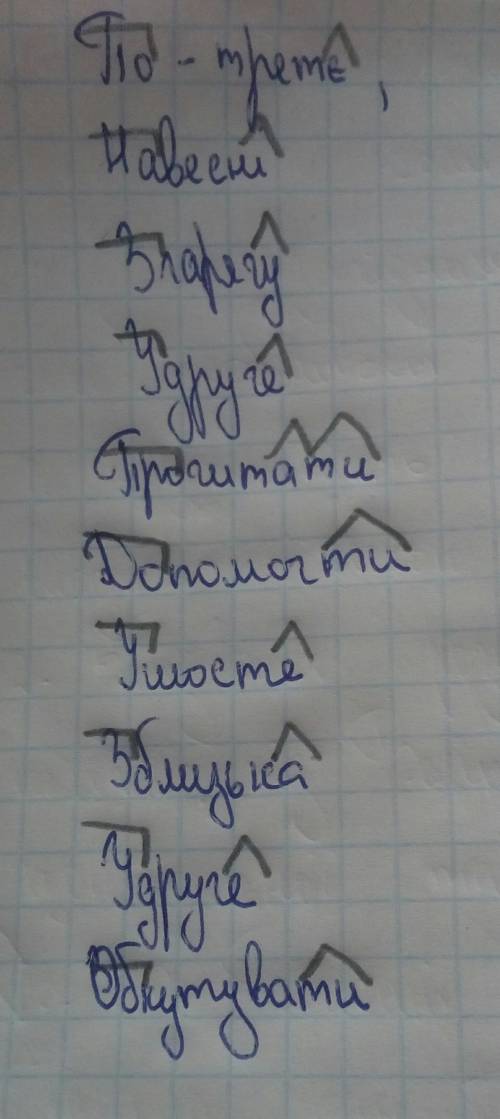 По-третє,
Навесні
Зпарягу
Удруге
Прочитати
Допомогти
Ушосте
Зблизька
Удруге
Обкутувати